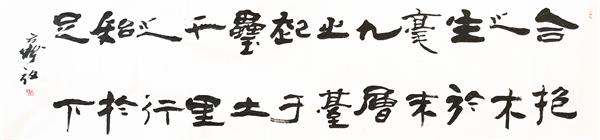 合抱
之木
生於
毫末
九層
之臺
起于
壘土
千里
之行
始於
足下